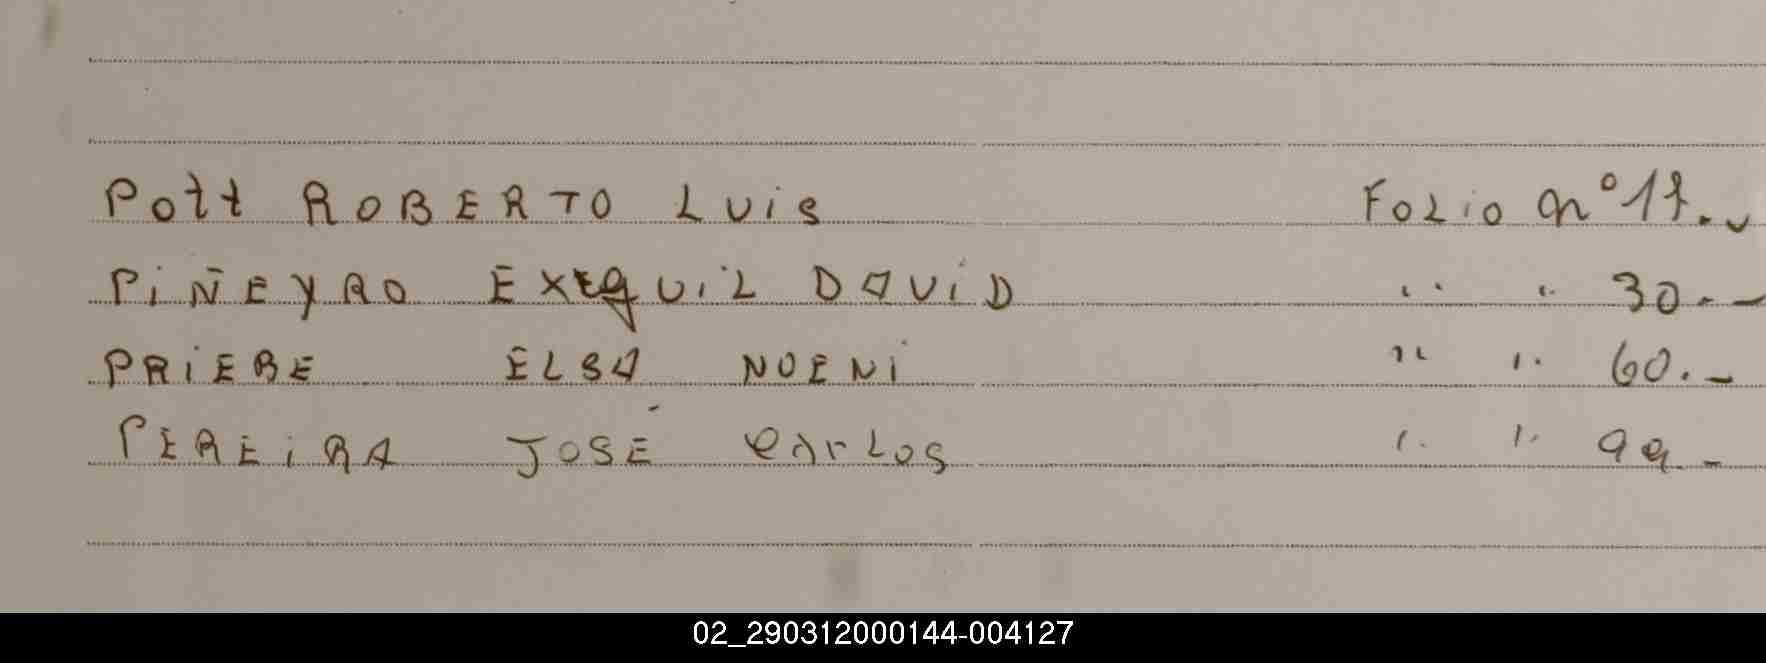 Pott ROBERTO LUis Folio n° 17.-
PiÑEYRO EXEQUiL DAViD " " 30.-
PRiEBE ELSA NOENi " " 60.-
PEREiRA JOSÉ CarLos " " 99.-
02_290312000144-004127